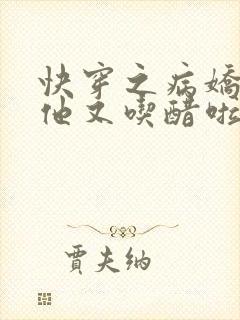 快穿之病嬌
他又喫醋啦
賈夫納